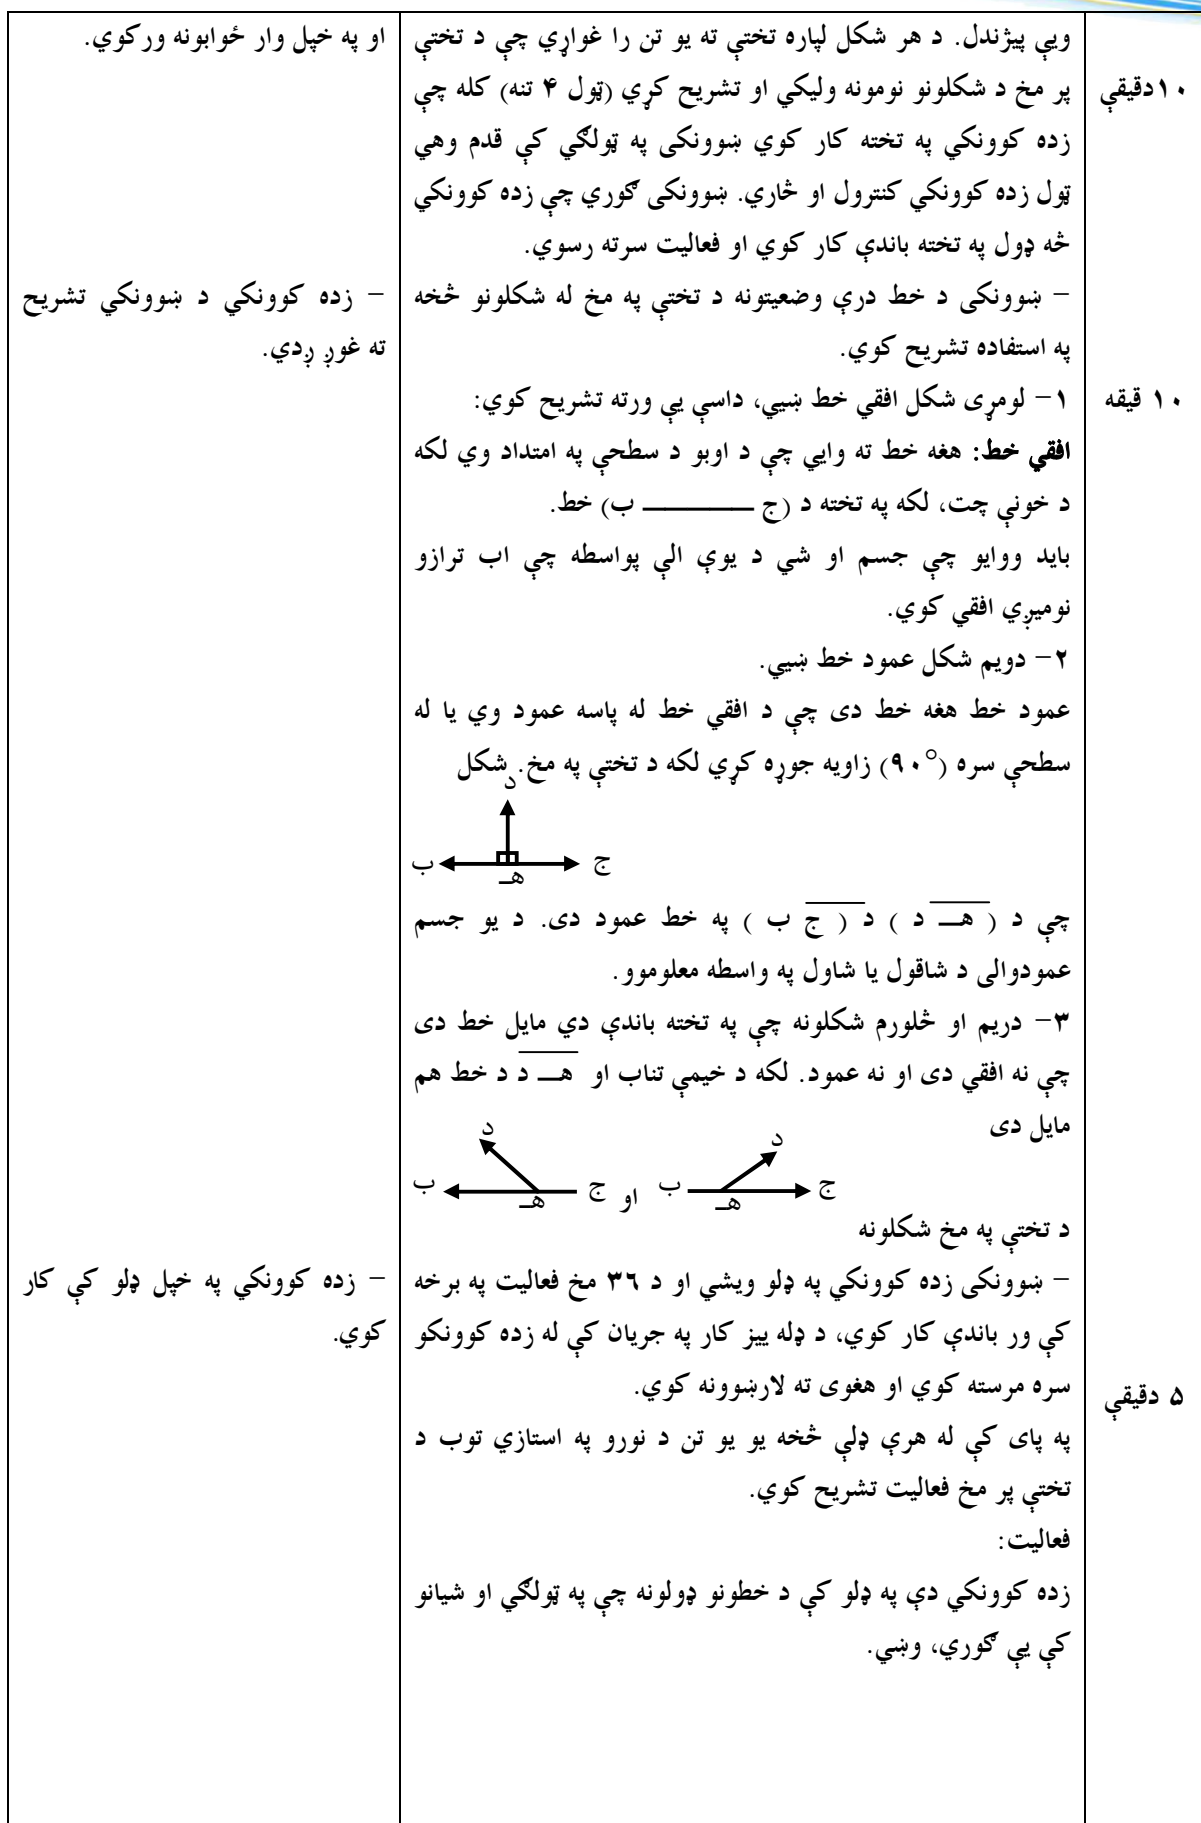 ویې پیژندل. د هر شکل لپاره تختې ته یو تن را غواړي چې د تختې
او په خپل وار ځوابونه ورکوي.
۱۰دقیقې
پر مخ د شکلونو نومونه ولیکي او تشریح کړي (ټول ۴ تنه) کله چې
زده کوونکي په تخته کار کوي ښوونکی په ټولګي کې قدم وهي
ټول زده کوونکي کنترول او څاري. ښوونکی ګوري چې زده کوونکي
څه ډول په تخته باندې کار کوي او فعالیت سرته رسوي.
– ښوونکی د خط درې وضعیتونه د تختې په مخ له شکلونو څخه
– زده کوونکي د ښوونکي تشریح
په استفاده تشریح کوي.
ته غوږ ږدي.
۱۰ قیقه
۱– لومړی شکل افقي خط ښیي، داسې یې ورته تشریح کوي:
افقي خط: هغه خط ته وایي چې د اوبو د سطحې په امتداد وي لکه
د خونې چت، لکه په تخته د (ج ــــــــــــ ب) خط.
باید ووایو چې جسم او شي د یوې الې پواسطه چې اب ترازو
نومیږي افقي کوي.
۲– دویم شکل عمود خط ښیي.
عمود خط هغه خط دی چې د افقي خط له پاسه عمود وي یا له
سطحې سره (۹۰°) زاویه جوړه کړي لکه د تختې په مخ. شکل
د
ج
ب
هـ
چې د ( هـــ د ) د ( ج ب ) په خط عمود دی. د یو جسم
عمودوالی د شاقول یا شاول په واسطه معلوموو.
۳– دریم او څلورم شکلونه چې په تخته باندې دي مایل خط دی
چې نه افقي دی او نه عمود. لکه د خیمې تناب او هـــ د د خط هم
مایل دی
د
د
ج
ب
او
ج
ب
هـ
هـ
د تختې په مخ شکلونه
– ښوونکی زده کوونکي په ډلو ویشي او د ۳٦ مخ فعالیت په برخه
– زده کوونکي په خپل ډلو کې کار
کې ور باندې کار کوي، د ډله ییز کار په جریان کې له زده کوونکو
کوي.
سره مرسته کوي او هغوی ته لارښوونه کوي.
۵ دقیقې
په پای کې له هرې ډلې څخه یو یو تن د نورو په استازي توب د
تختې پر مخ فعالیت تشریح کوي.
فعالیت:
زده کوونکي دې په ډلو کې د خطونو ډولونه چې په ټولګي او شیانو
کې یې ګوري، وښي.